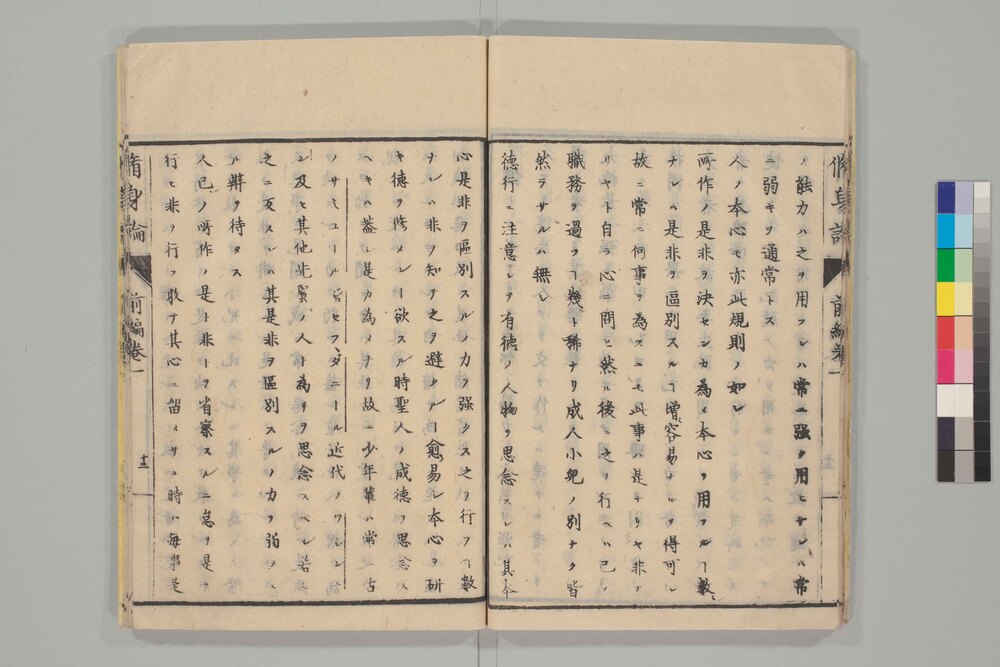 ノ能力ハ之ヲ用フレハ常ニ強ク用ヒサレハ常
ニ弱キヲ通常トス
人ノ本心モ亦此規則ノ如レ
所作ノ是非ヲ決センカ為メ本心ヲ用フルヿ数
ナレハ是非ヲ区別スルヿ増容易ナルヲ得可シ
故ニ常ニ何事ヲ為スニモ此事ハ是ナリヤ非ナ
リヤト自ラ心ニ問ヒ然ル後之ヲ行ヘハ己ノ
職務ヲ過ツヿ幾ト稀ナリ成人小児ノ別ナク皆
然ラサルハ無レ
徳行ニ注意シテ有徳ノ人物ヲ思念スレハ其本
心是非ヲ区別スルノ力ヲ強クス之ヲ行フヿ数
ナレハ非ヲ知テ之ヲ避クルヿ愈易シ本心ヲ研
キ徳ヲ修メンヿ欲スル時聖人ノ成徳ヲ思念ス
ヘキハ蓋シ是カ為メナリ故ニ少年輩ハ常ニ古
ノサミユール
ダニール近代ノワシントン
及ヒ其他先賢ノ人ト為リヲ思念スヘレ若
之ニ反スレハ其是非ヲ区別スルノ力ヲ弱ムル
ハ辨ヲ待タス
人己ノ所作ノ是ト非トヲ省察スルニ怠リ是ヲ
行ヒ非ヲ行フ敢テ其心ニ留メサル時ハ毎事是
脩身論
前編巻一
十三